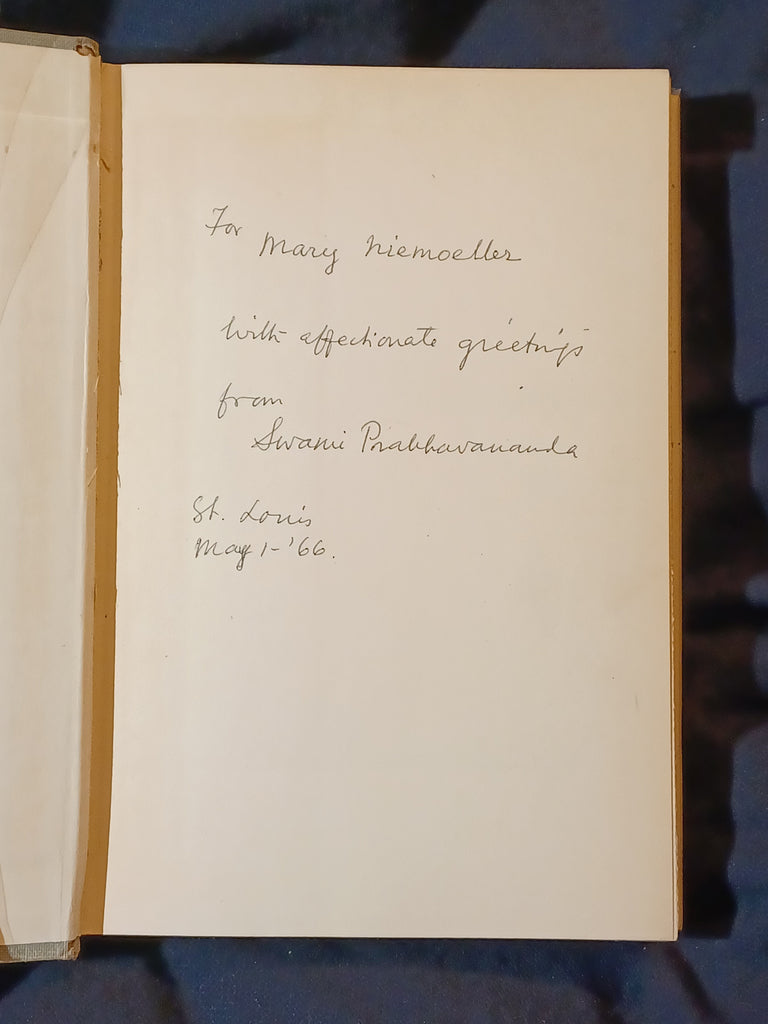 For
Mary Niemoeller
With affectionate greetings
from
Swami Prabhavananda
St. Louis
May 1-'66.